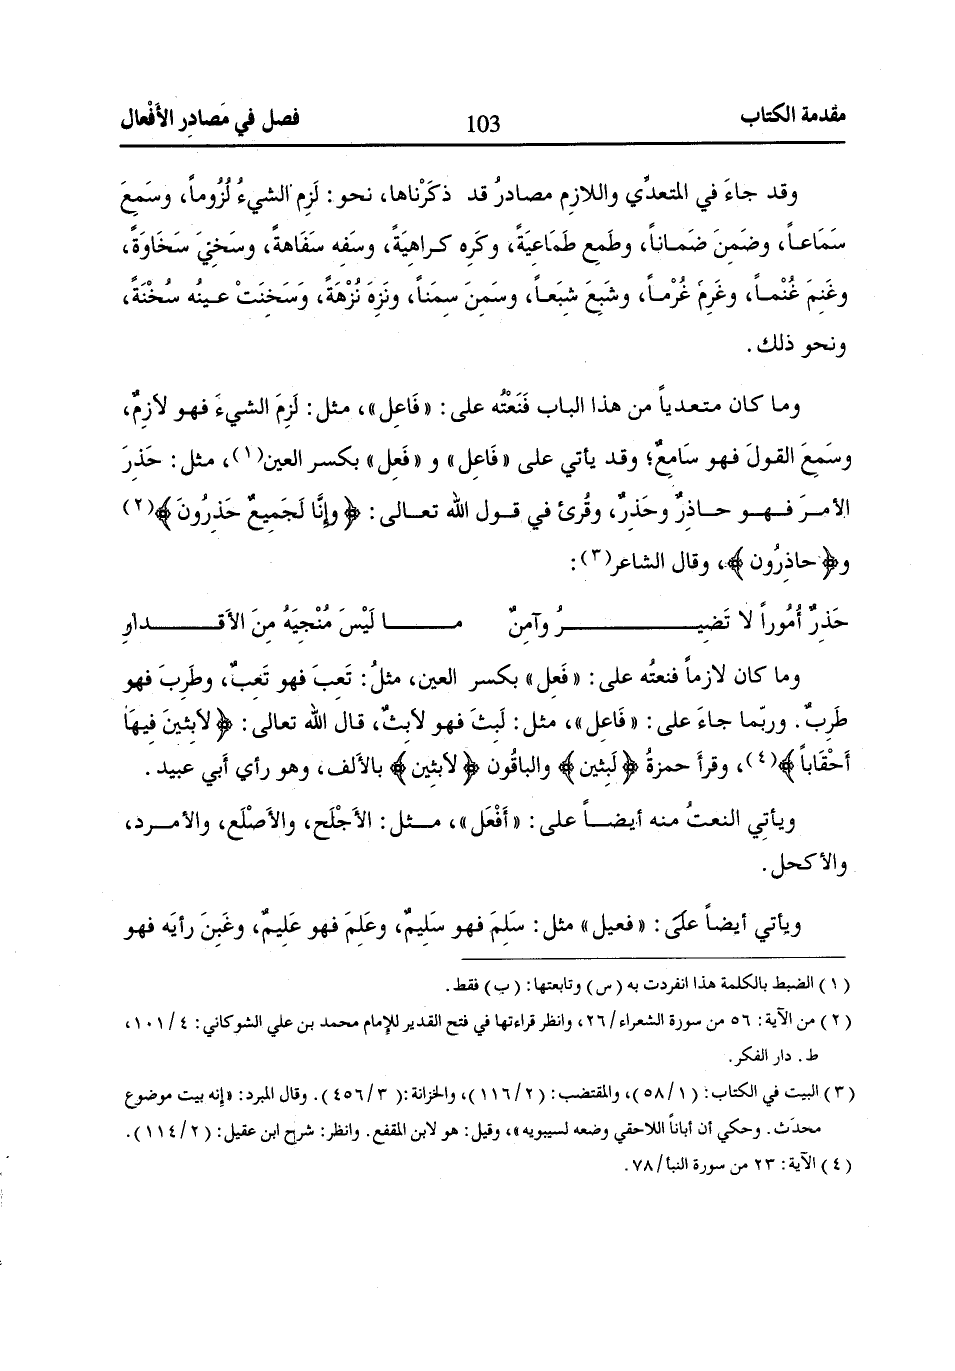 مقدمة الكتاب 103 فصل في مَصادِر الأَفْعال
وقد جاءَ في المتعدِّي واللازم مصادرُ قد ذكَرْناها، نحو: لَزِم الشيءُ لُزُوماً، وسَمِعَ
سَمَاعاً، وضَمِنَ ضَمـاناً، وطَمِع طَمَاعِيَةً، وكَرِه كـراهِيَةً، وسَفِه سَفَاهةً، وسَخِيَ سَخَاوَةً،
وغَنِمَ غُنْمـاً، وغَرِمَ غُرْماً، وشَبِعَ شِبَعاً، وسَمِنَ سِمَناً، ونَزِهَ نُزْهَةً، وَسَخِنَتْ عـينُه سُخْنَةً،
ونحو ذلك.
وما كان متعدياً من هذا الباب فَنَعْتُه على: «فَاعِل»، مثل: لَزِمَ الشيءَ فهو لازِمٌ،
وسَمِعَ القولَ فهو سَامِعٌ؛ وقد يأتي على «فَاعِل» و «فَعِل» بكسر العين(١)، مثل: حَذِرَ
الأمـرَ فـهـو حـاذِرٌ وحَذِرٌ، وقُرئ في قـول الله تعـالى: ﴿وإِنَّا لَجَمِيعٌ حَذِرُونَ﴾(٢)
و﴿حاذِرُون﴾، وقال الشاعر(٣):
حَذِرٌ أُمُوراً لا تَضِيـرُ وآمِنٌ مـا لَيْسَ مُنْجِيَهُ مِنَ الأَقـدارِ
وما كان لازماً فنعتُه على: «فَعِل» بكسر العين، مثلُ: تَعِبَ فهو تَعِبٌ، وطَرِبَ فهو
طَرِبٌ. وربّما جاءَ على: «فَاعِل»، مثل: لَبِثَ فهو لابِثٌ، قال الله تعالى: ﴿لابِثِينَ فِيهَا
أَحْقَاباً﴾(٤)، وقرأَ حمزةُ ﴿لَبِثِين﴾ والباقُون ﴿لابِثِين﴾ بالألف، وهو رأي أبي عبيد.
ويأتِي النعتُ منه أيضـاً على: «أَفْعَل»، مـثل: الأَجْلَح، والأصْلَع، والأمـرد،
والأكحل.
ويأتي أيضاً علَى: «فعيل» مثل: سَلِمَ فهو سَلِيمٌ، وعَلِمَ فهو عَلِيمٌ، وغَبِنَ رأيَه فهو
(١) الضبط بالكلمة هذا انفردت به (س) وتابعتها: (ب) فقط.
(٢) من الآية: ٥٦ من سورة الشعراء/٢٦، وانظر قراءتها في فتح القدير للإمام محمد بن علي الشوكاني: ٤/١٠١،
ط. دار الفكر.
(٣) البيت في الكتاب: (١/٥٨)، والمقتضب: (٢/١١٦)، والخزانة: (٣/٤٥٦). وقال المبرد: «إنه بيت موضوع
محدَث. وحكي أن أباناً اللاحقي وضعه لسيبويه»، وقيل: هو لابن المقفع. وانظر: شرح ابن عقيل: (٢/١١٤).
(٤) الآية: ٢٣ من سورة النبأ/٧٨.